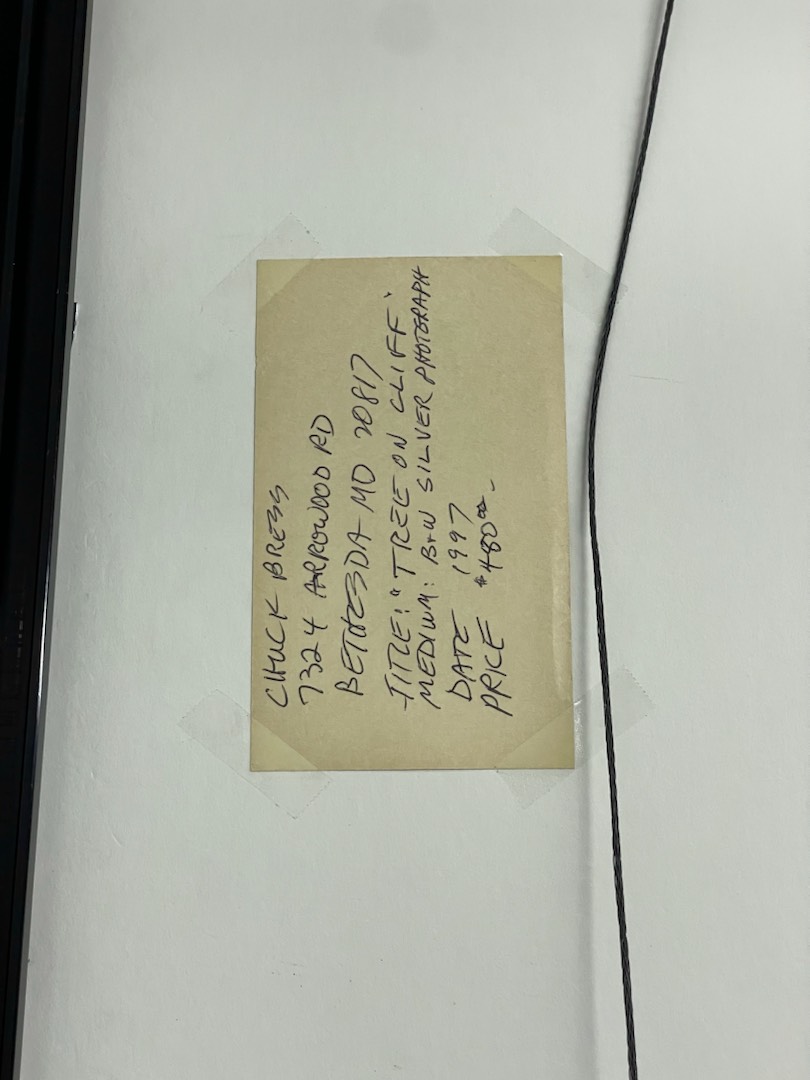 CHUCK BRESS
7324 ARROWOOD RD
BETHESDA MD 20817
TITLE: "TREE ON CLIFF"
MEDIUM: B+W SILVER PHOTOGRAPH
DATE 1997
PRICE $480.00-